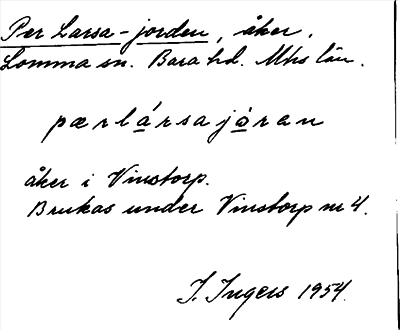 Per Larsa-jorden, åker.
Lomma sn. Bara hd. Mhs län.
pærlársajòran
åker i Vinstorp.
Brukas under Vinstorp nr 4.
I. Ingers 1954.